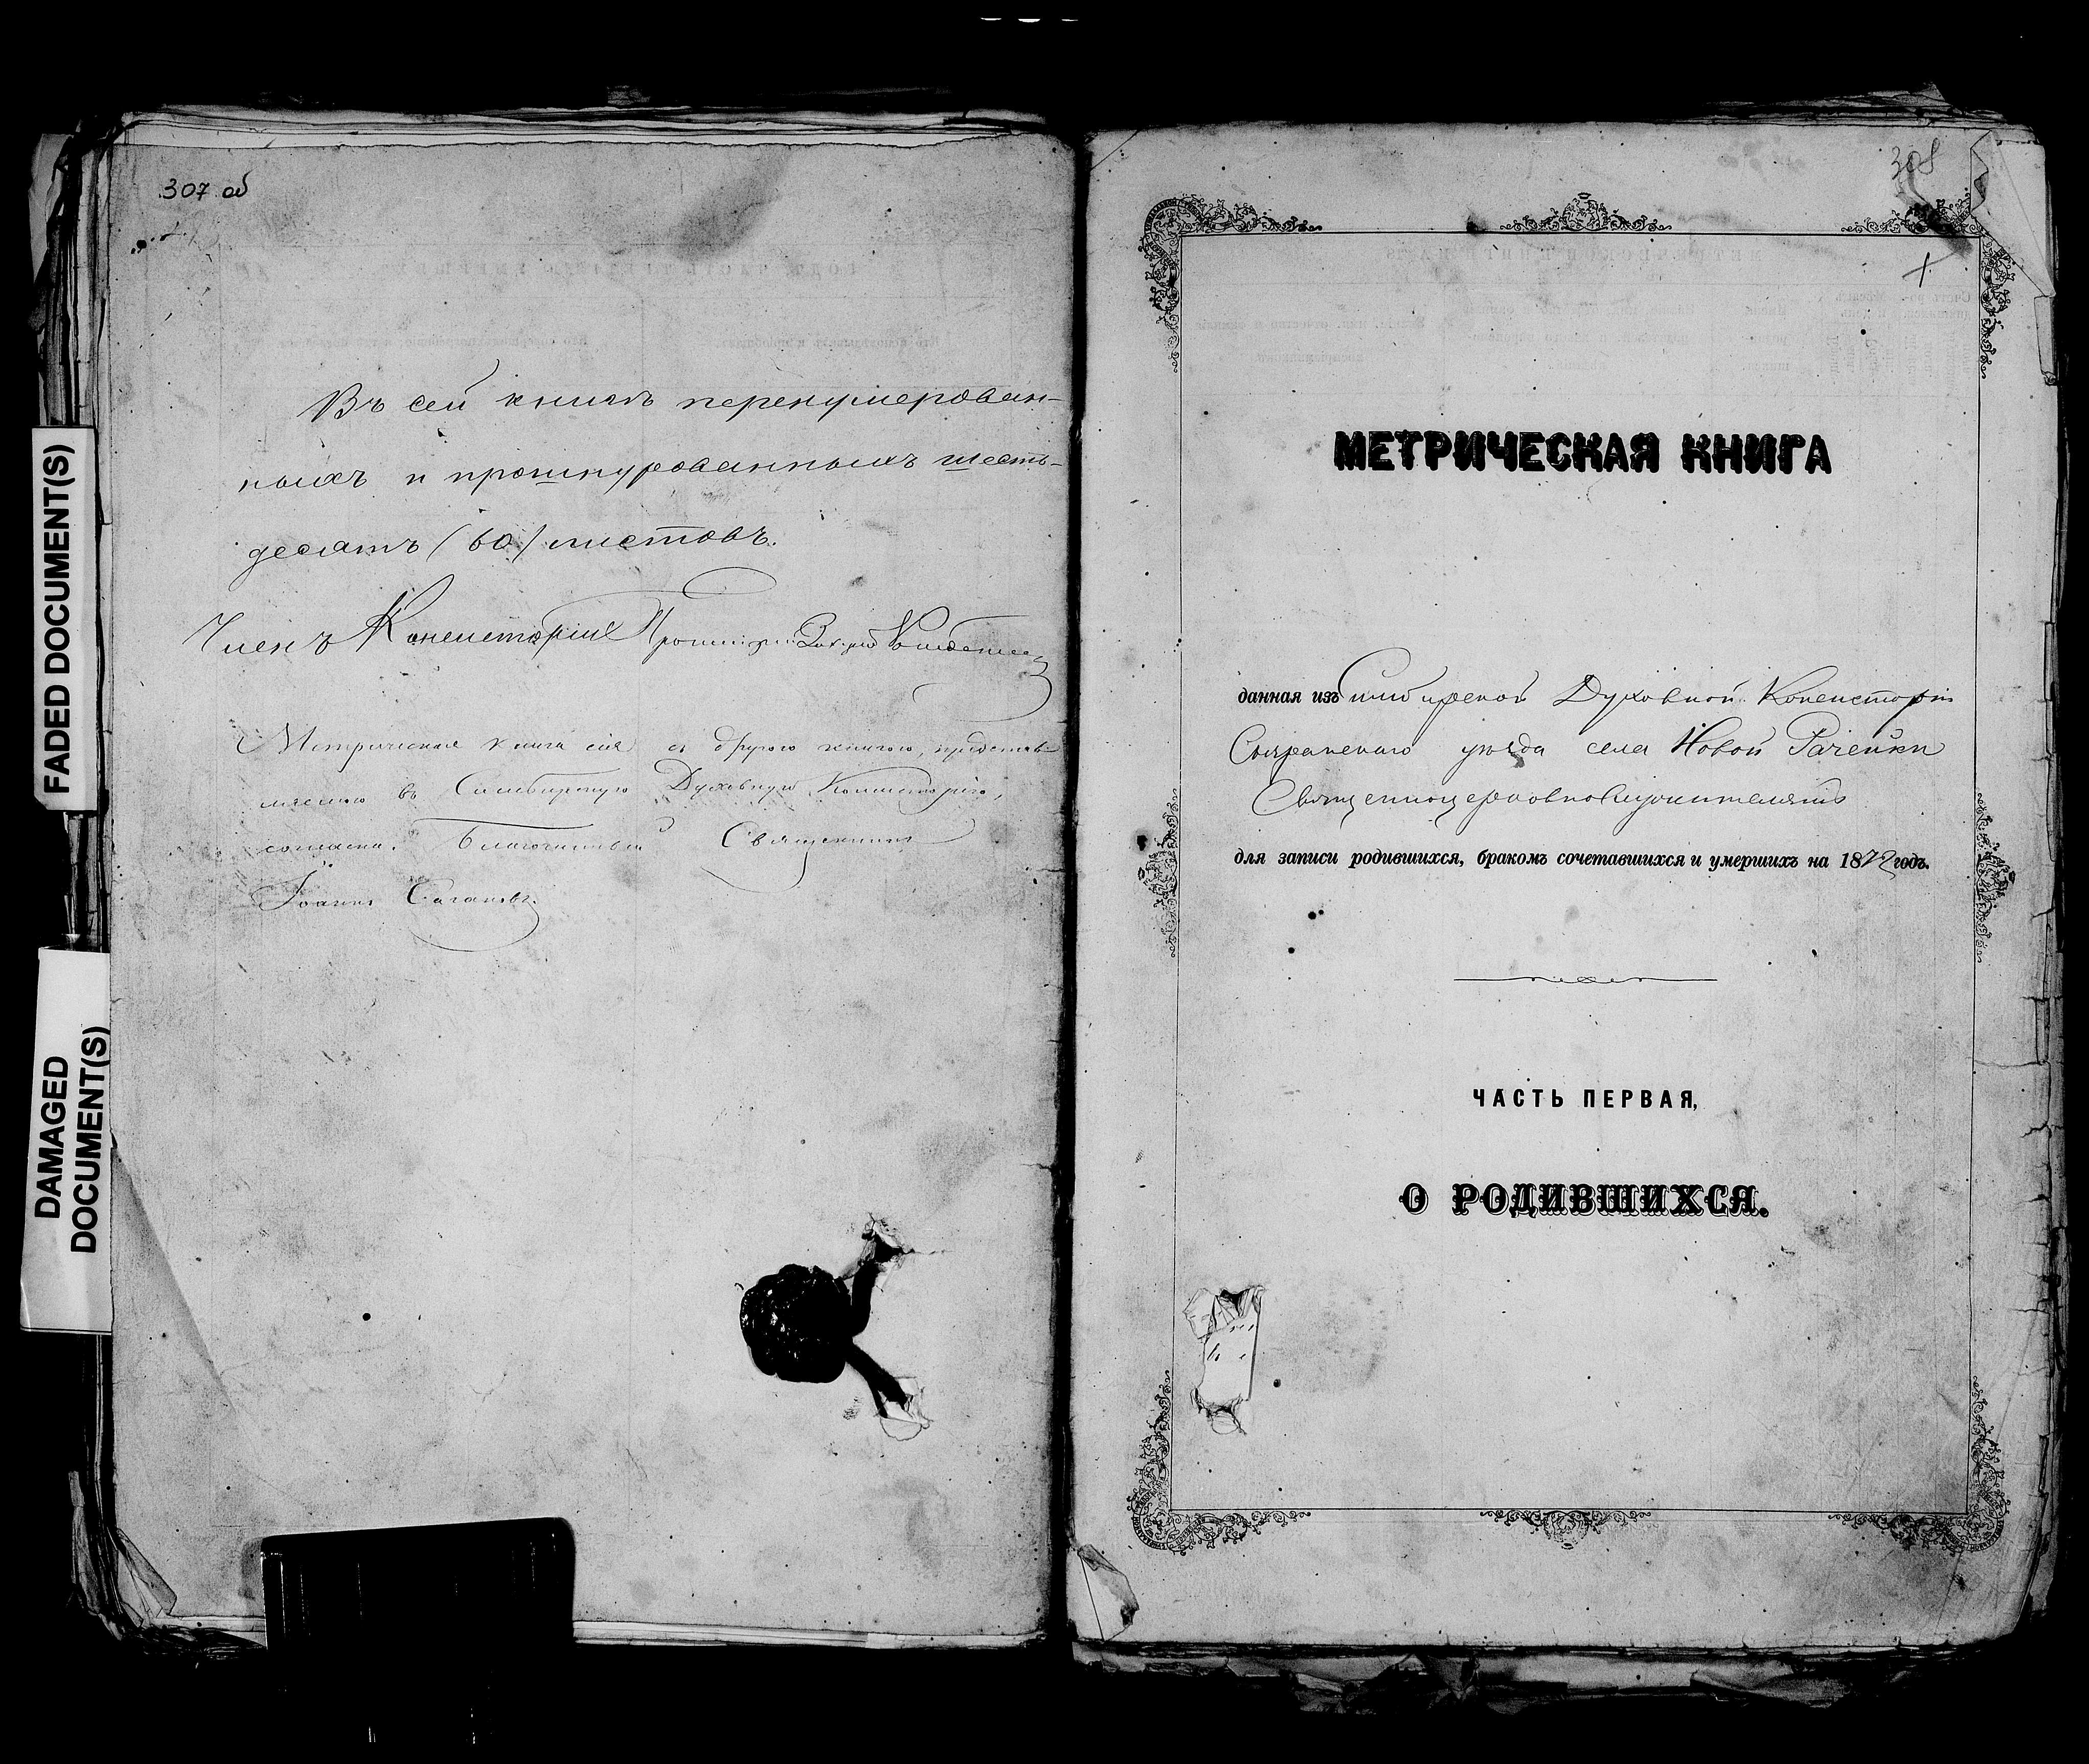 FADED DOCUMENT(S)
DAMAGED
DOCUMENT(S)
307 об
Въ сей книгѣ перенумерован-
ныхъ и прошнурованныхъ шесть-
десятъ (60) листовъ.
Членъ Консисторіи
Метрическая книга сія съ другою книгою, представ-
ляемою въ Симбирскую Духовную Консисторію,
согласна. Благочинный Священникъ
Іоаннъ
308
МЕТРИЧЕСКАЯ КНИГА
данная изъ Симбирской Духовной Консисторіи
Сызранскаго уѣзда села Новой Рачейки
Священноцерковнослужителямъ
для записи родившихся, бракомъ сочетавшихся и умершихъ на 1872 годъ.
ЧАСТЬ ПЕРВАЯ,
О РОДИВШИХСЯ.